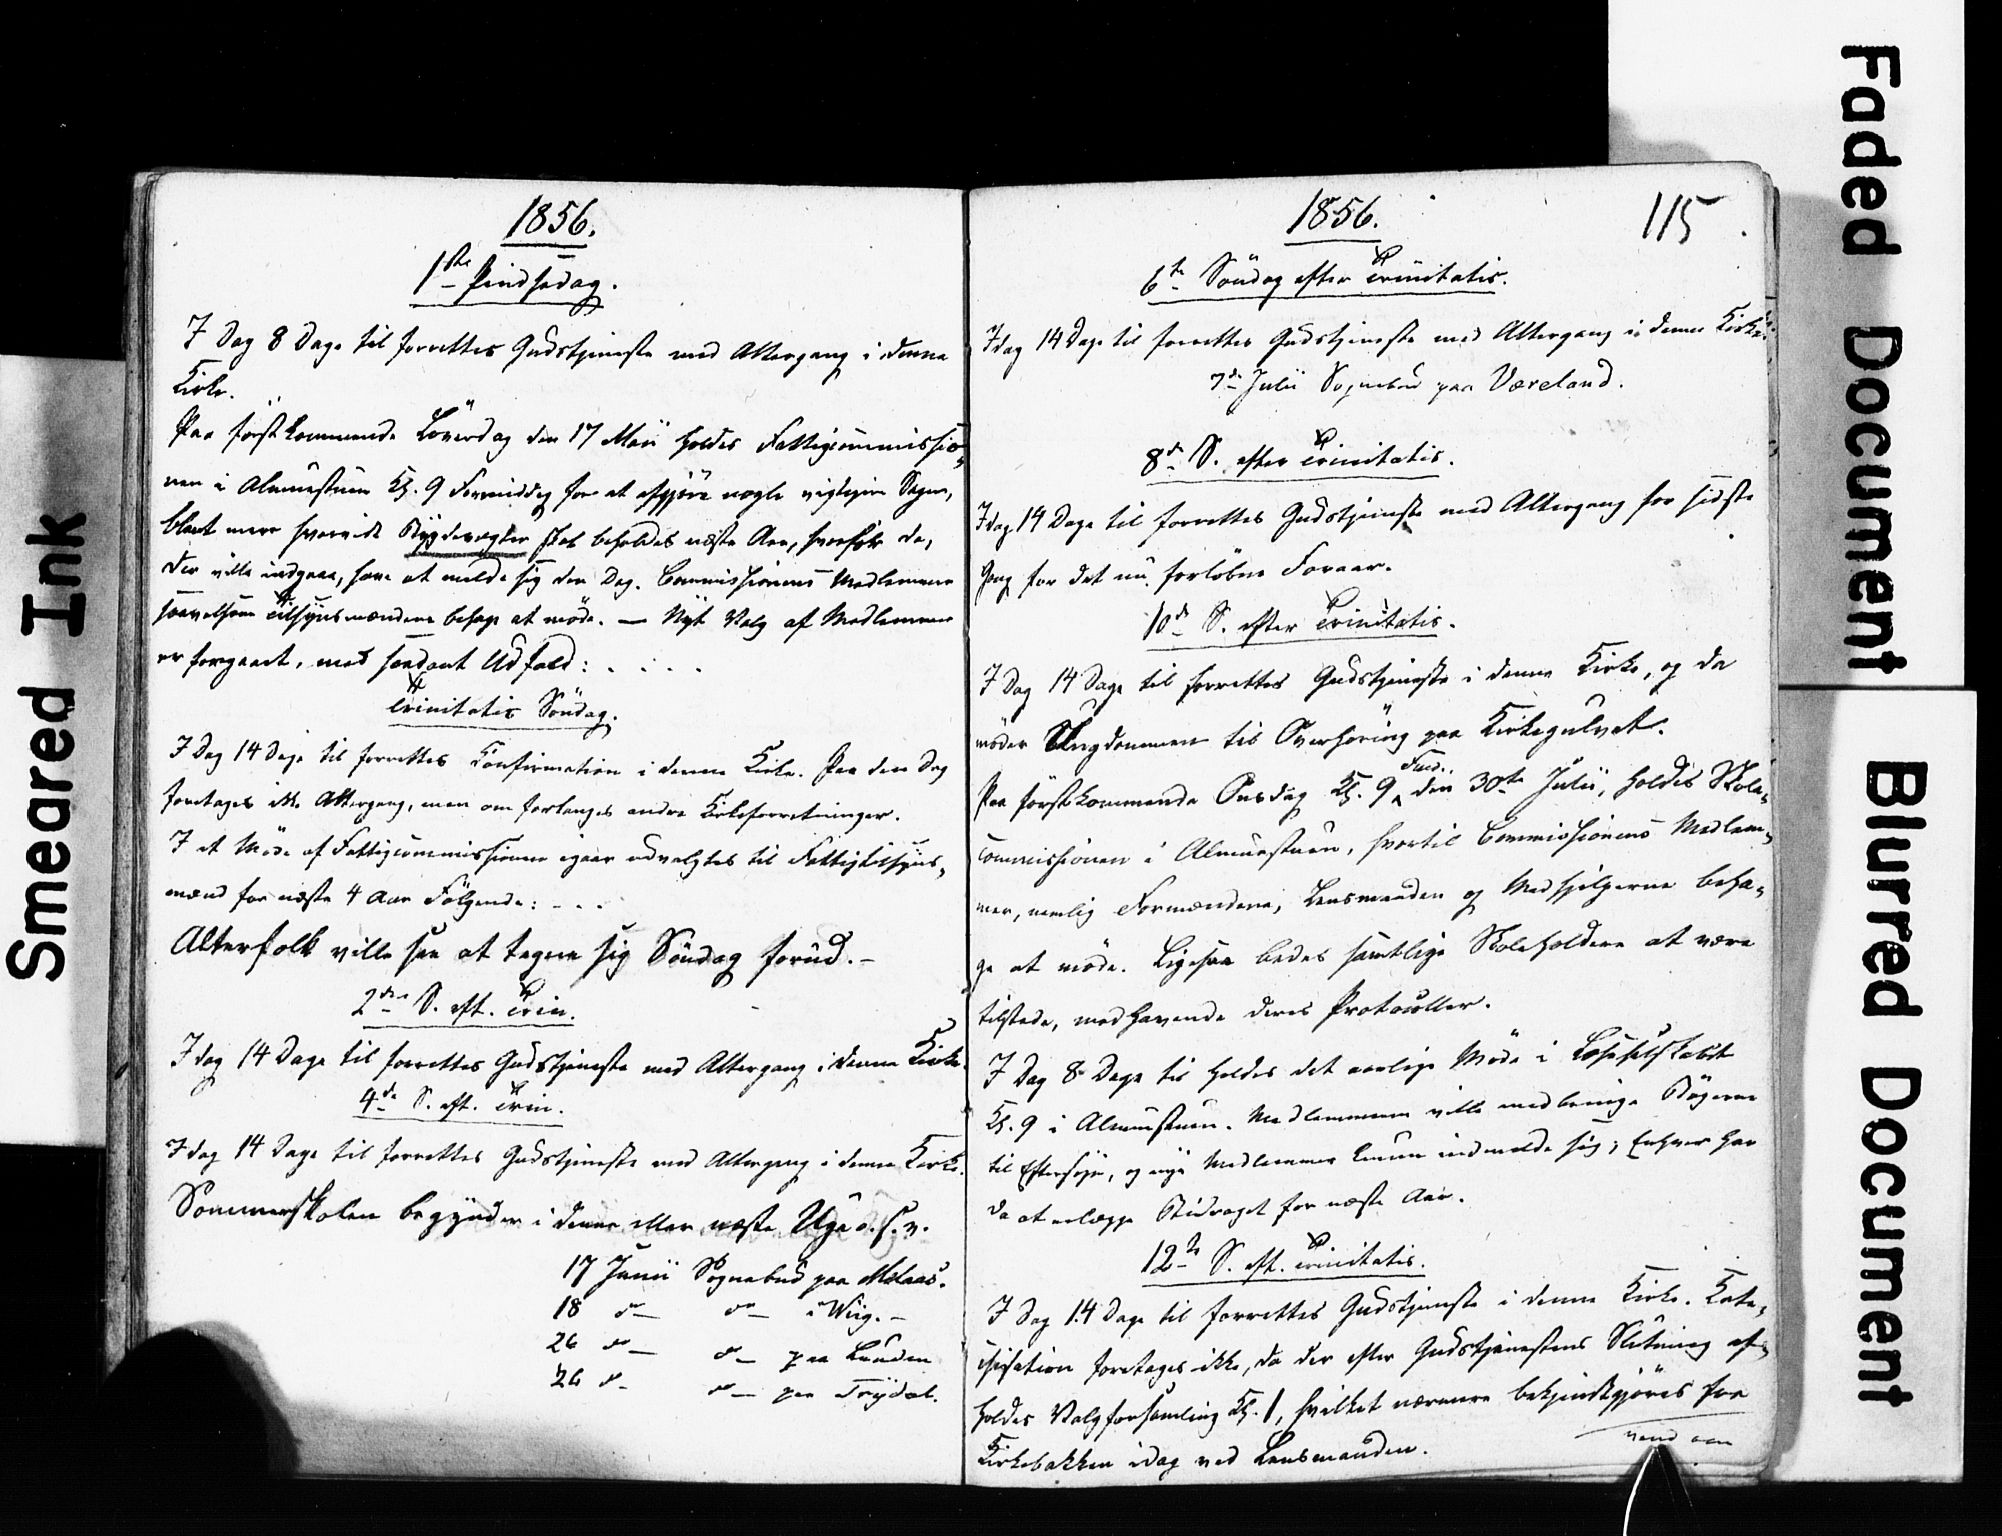 1856.
1ste Pindsedag.
I Dag 8 Dage til forrettes Gudstjeneste med Altergang i denne
Kirke.
Paa förstkommende Löverdag den 17 Maii holdes Fattigcommissio-
nen i Almuestuen Kl. 9 Formiddag for at afgjöre nogle vigtigere Sager,
blant mere hvorvidt Bygdevægter skal beholdes næste Aar, hvorfor de,
der ville indgaae, have at melde sig den Dag. Commissionens Medlemmer
saavelsom Tilsynsmændene behage at möde. — Nyt Valg af Medlemmer
er foregaaet, med saadant Udfald: . . . .
Trinitatis Söndag.
I Dag 14 Dage til forrettes Confirmation i denne Kirke. Paa den Dag
foretages ikke Altergang, men om forlanges andre Kirkeforretninger.
I et Möde af Fattigcommissionen igaar udvalgtes til Fattigtilsyns-
mænd for næste 4 Aar Fölgende: - - -
Alterfolk ville see at tegne sig Söndag forud. -
2den S. eft. Trin.
I dag 14 Dage til forrettes Gudstjeneste med Altergang i denne Kirke.
4de S. eft. Trin.
I dag 14 Dage til forrettes Gudstjeneste med Altergang i denne Kirke.
Sommerskolen begynder i denne eller næste Uge o. s. v.
17 Junii Sognebud paa Molaas.
18 do do i Wiig. -
26 do do paa Lunden
26 do do paa Trydal.
1856.
115
6te Söndag efter Trinitatis.
I dag 14 Dage til forrettes Gudstjeneste med Altergang i denne Kirke.
7de Julii Sognebud paa Væreland.
8de S. efter Trinitatis.
I dag 14 Dage til forrettes Gudstjeneste med Altergang for sidste
Gang for det nu forløbne Foraar.
10de S. efter Trinitatis.
I Dag 14 Dage til forrettes Gudstjeneste i denne Kirke, og da
möder Ungdommen til Overhöring paa Kirkegulvet.
Paa förstkommende Onsdag Kl. 9 Form. den 30te Julii, holdes Skole-
commissionen i Almuestuen, hvortil Commissionens Medlem-
mer, nemlig Formændene, Lensmanden og Medhjelperne beha-
ge at möde. Ligesaa bedes samtlige Skoleholdere at være
tilstede, medhavende deres Protocoller.
I Dag 8 Dage til holdes det aarlige Möde i Læseselskabet
Kl. 9 i Almuestuen. Medlemmerne ville medbringe Bögerne
til Eftersyn, og nye Medlemmer kunne indmelde sig; Enhver har
da at erlægge Bidraget for næste Aar.
12te S. eft. Trinitatis.
I Dag 14 Dage til forrettes Gudstjeneste i denne Kirke. Kate-
chisation foretages ikke, da der efter Gudstjenestens Slutning af-
holdes Valgforsamling Kl. 1, hvilket nærmere bekjendtgjöres fra
Kirkebakken idag ved Lensmanden.
vend om
Smeared Ink
Faded Document
Blurred Document